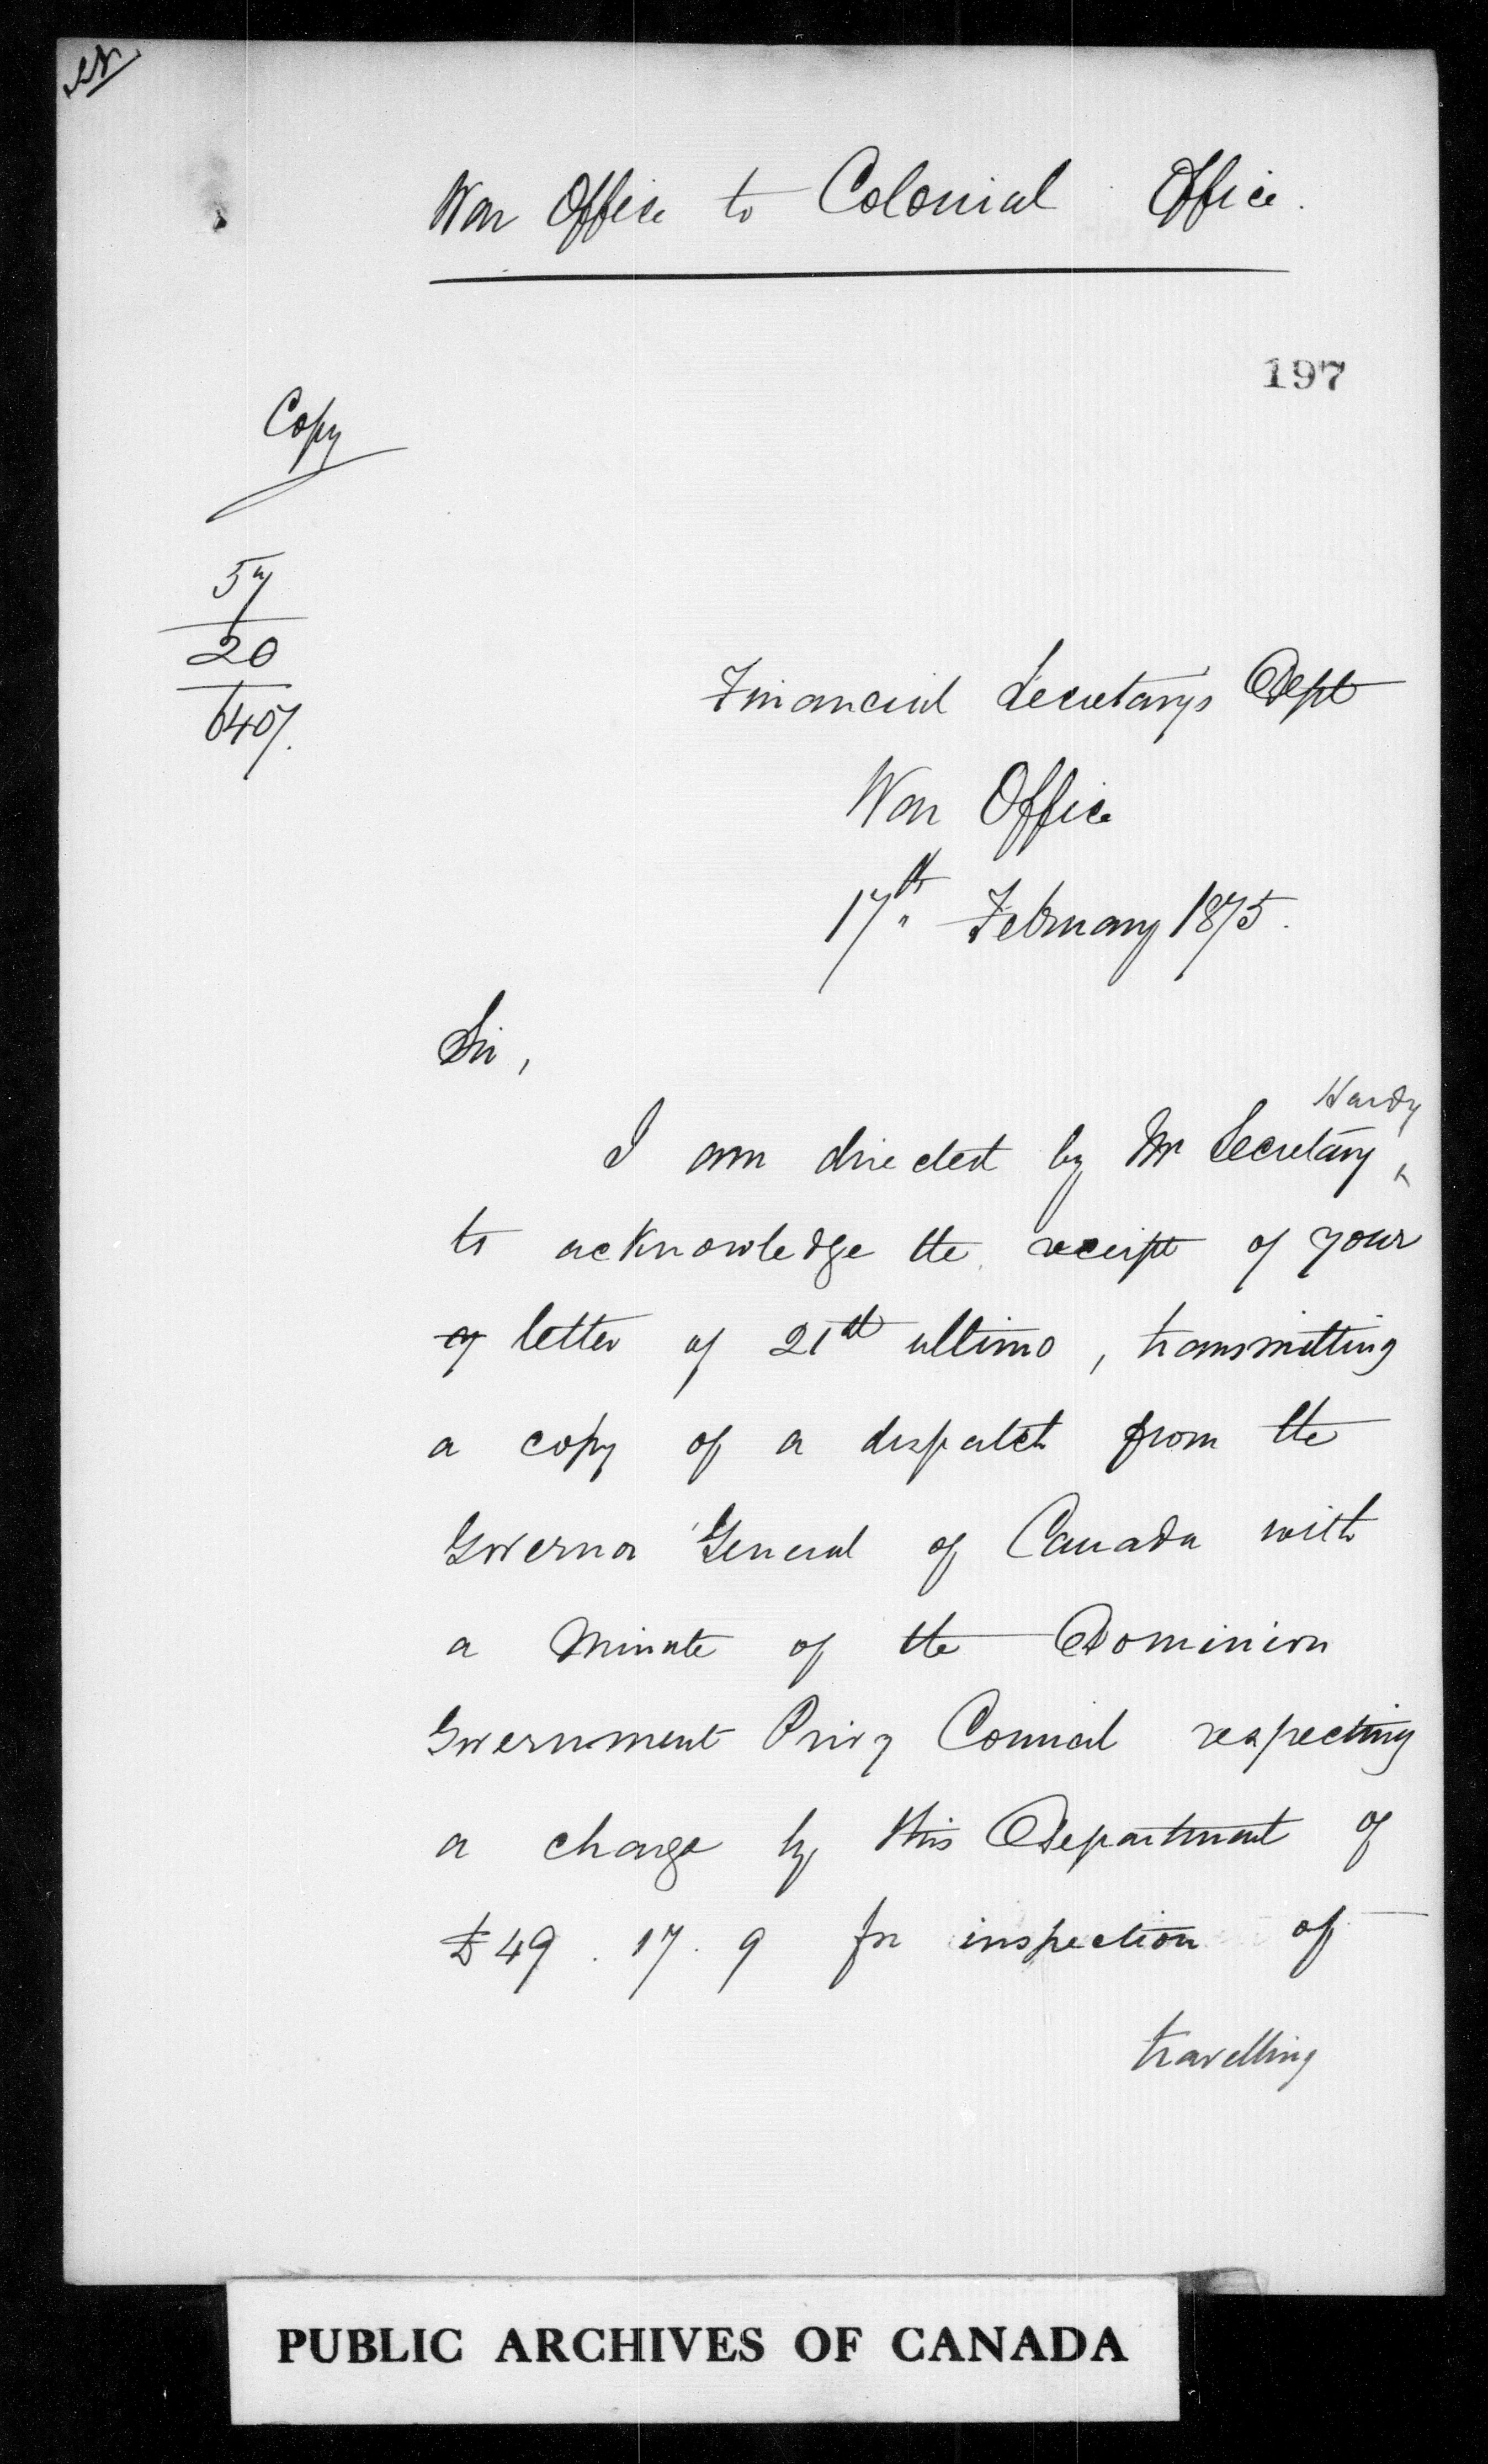 War Office to Colonial Office.
197
Copy
57
20
640/.
Financial Secretarys Dept
War Office
17th February 1875.
Sir,
Hardy
I am directed by Mr Secretary ^
to acknowledge the receipt of your
of letter of 21st ultimo, transmitting
a copy of a dispatch from the
Governor General of Canada with
a Minute of the Dominion
Government Privy Council respecting
a charge by this Department of
£49.17.9 for inspection of
travelling
PUBLIC ARCHIVES OF CANADA